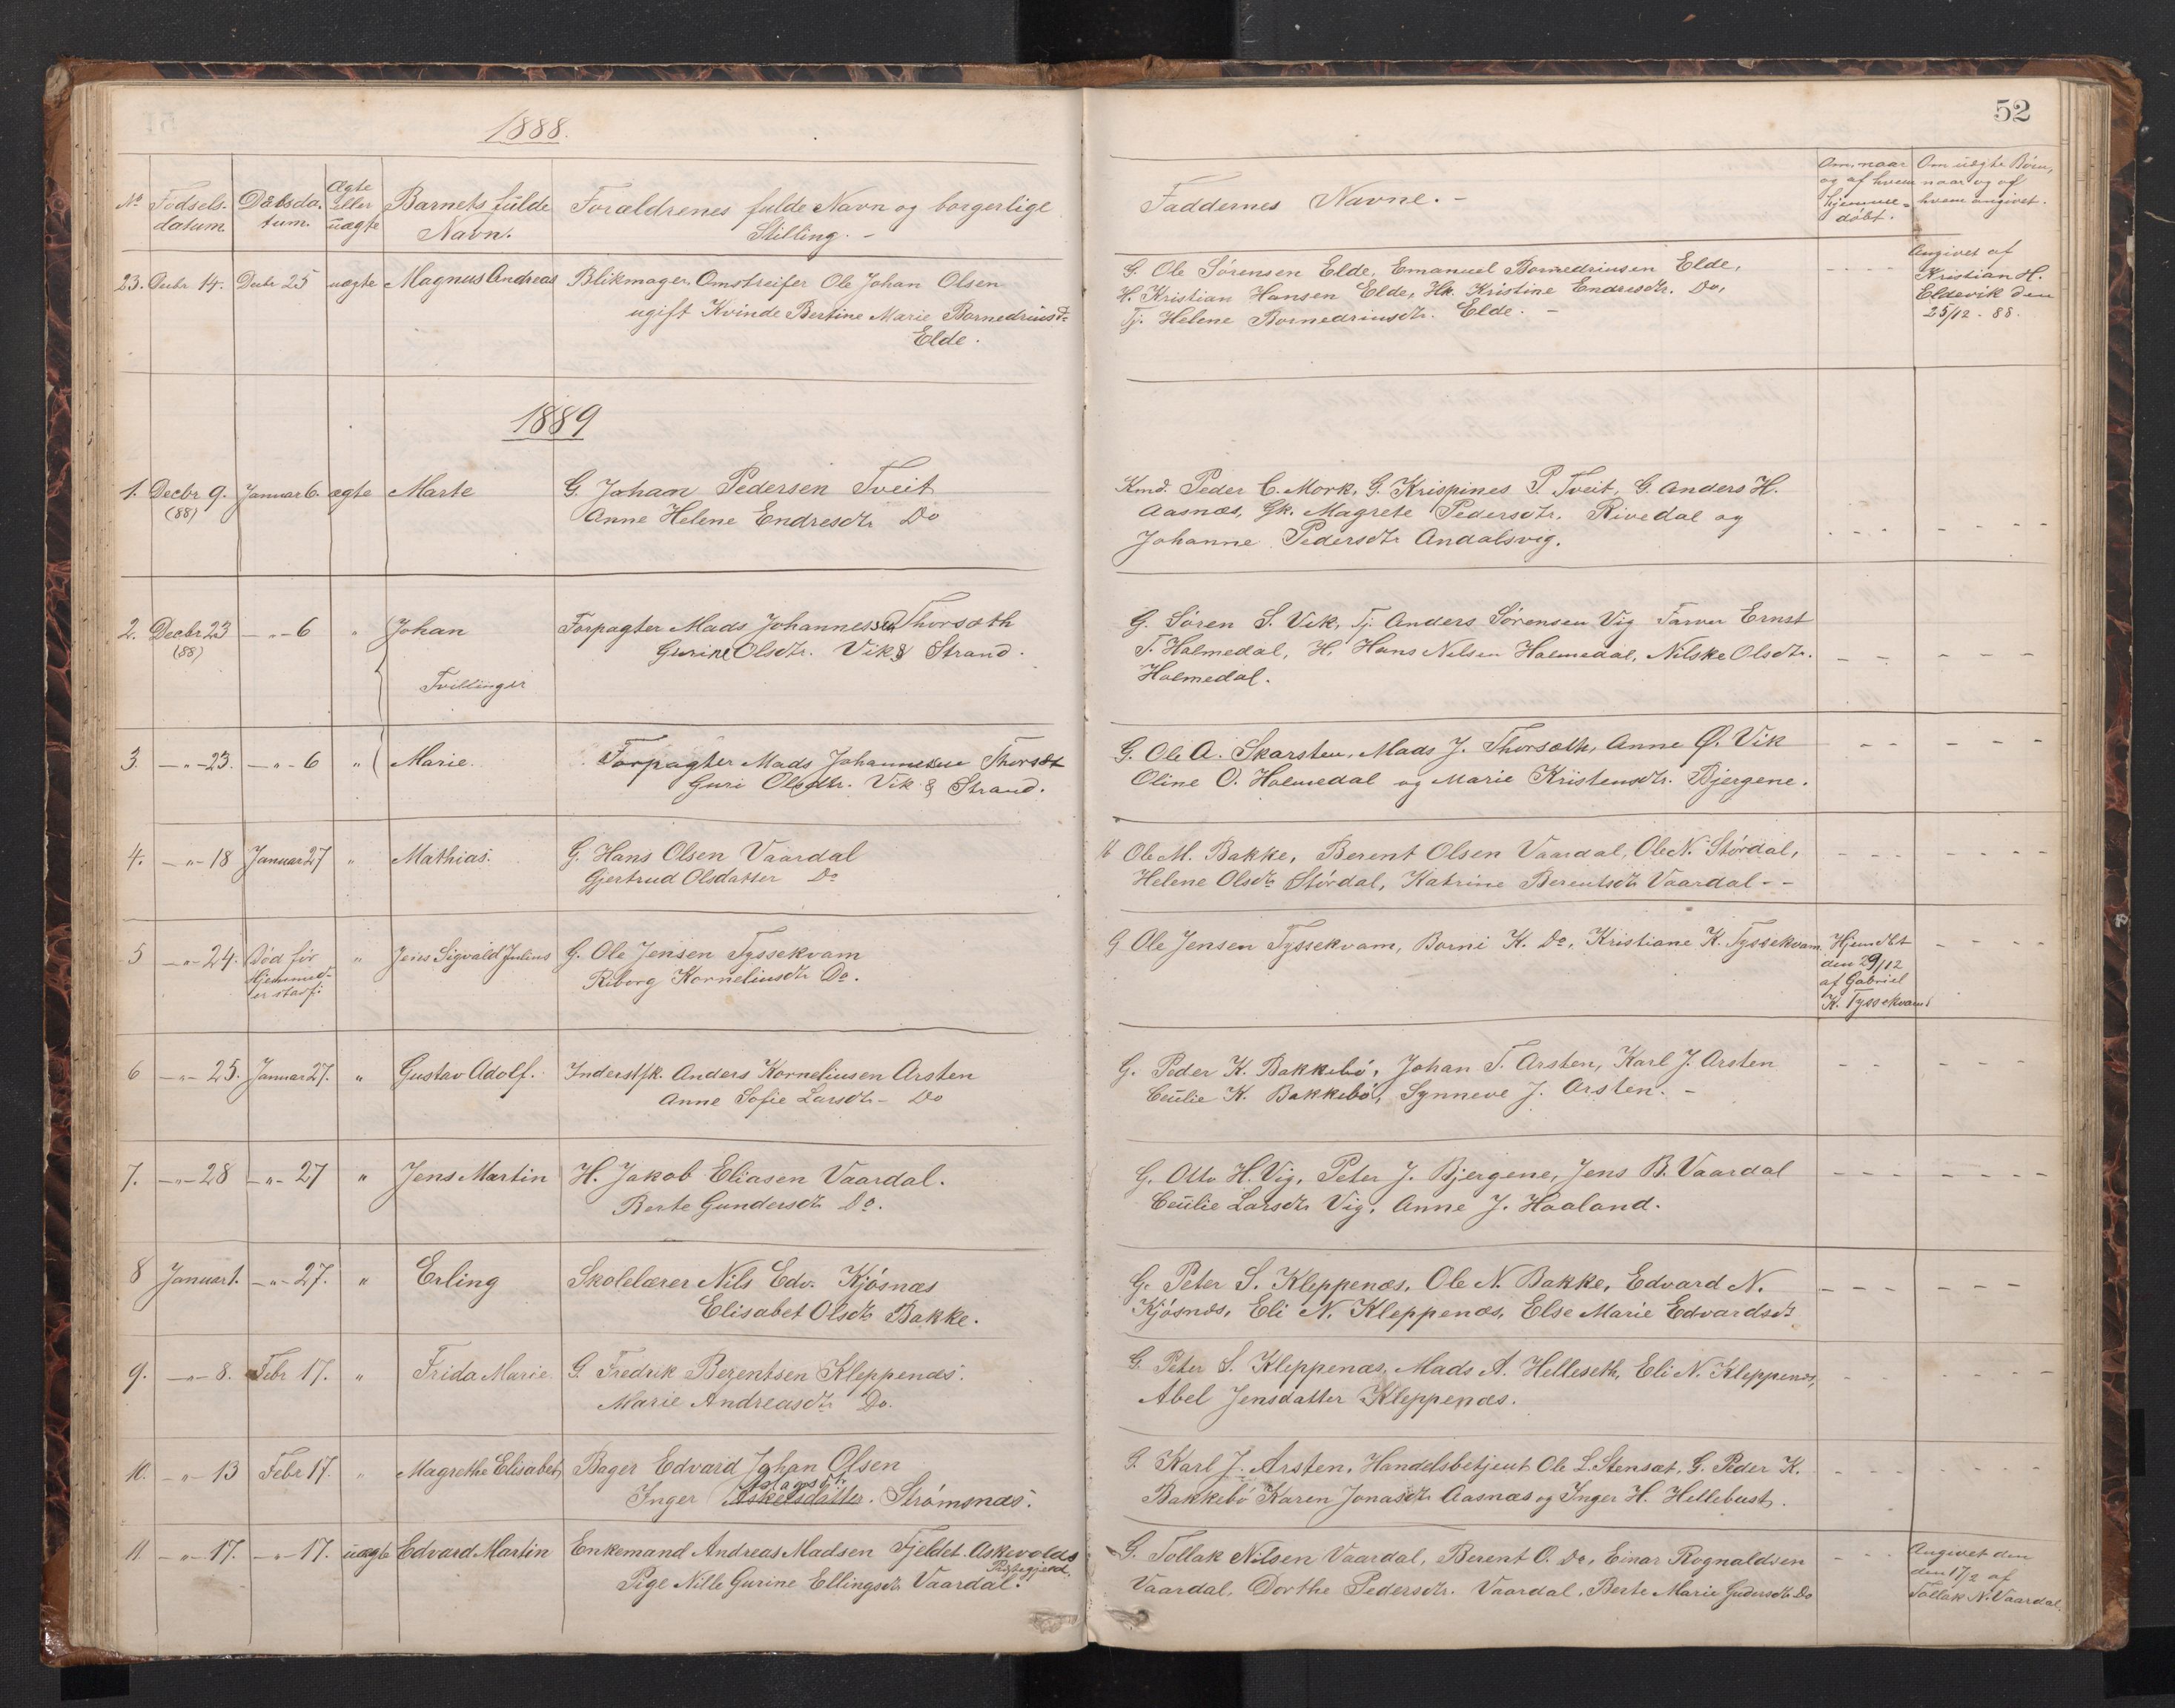 52
1888.
No Fødsels-datum. Døbsda-tum. Ægte eller uægte Barnets fulde Navn. Forældrenes fulde Navn og borgerlige Stilling. -
Faddernes Navne. -
Om, naar og af hvem hjemme-døbt.
Om uægte Børn, naar og af hvem angivet.
23. Decbr 14. Decbr 25 uægte Magnus Andreas Blikmager Omstreifer Ole Johan Olsen
ugift Kvinde Bertine Marie Bornedriusd.
Elde.
G. Ole Sørensen Elde, Emanuel Bornedriusen Elde,
H. Kristian Hansen Elde, Hk. Kristine Endresdtr. Do,
Tj. Helene Bornedriusdtr. Elde. -
Angivet af
Kristian H.
Eldevik den
25/12 - 88.
1889
1. Decbr 9. Januar 6. ægte Marte G. Johan Pedersen Tveit
(88) Anne Helene Endresdtr Do
Kmd. Peder C. Mork, G. Krispines P. Tveit, G. Anders H.
Aasnæs, Gk. Magrete Pedersdtr. Rivedal og
Johanne Pedersdtr Andalsvig.
2. Decbr 23 -"- 6 " Johan Forpagter Mads Johannessen Thorsæth
(88) Gurine Olsdtr. Vik & Strand.
Tvillinger
G. Søren S. Vik, Tj. Anders Sørensen Vig Farver Ernst
T. Halmedal, H. Hans Nilsen Holmedal, Nilske Olsdtr.
Holmedal.
3. -"- 23. -"- 6 " Marie. Forpagter Mads Johannesen Thorsæt
Guri Olsdtr. Vik & Strand.
G. Ole A. Skarsten, Mads J. Thorsæth, Anne Ø. Vik
Oline O. Holmedal og Marie Kristensdtr. Bjergene.
4. -"- 18 Januar 27 " Mathias. G. Hans Olsen Vaardal
Gjertrud Olsdatter Do
Ole M. Bakke, Berent Olsen Vaardal, Ole N. Størdal,
Helene Olsdtr Størdal, Katrine Berentsdtr Vaardal - -
5 -"- 24. Død før " Jens Sigvald Julius G. Ole Jensen Tyssekvam
Riborg Korneliusdtr Do.
G Ole Jensen Tyssekvam, Borni K. Do, Kristiane K. Tyssekvam
Hjemdbt
den 29/12
af Gabriel
K. Tyssekvam
6 -"- 25. Januar 27. " Gustav Adolf. Inderst fk. Anders Korneliusen Arsten
Anne Sofie Larsdtr - Do
G. Peder K. Bakkebø, Johan T. Arsten, Karl J. Arsten
Cecilie K. Bakkebø, Synneve J. Arsten. -
7. -"- 28 -"- 27 " Jens Martin H. Jakob Eliasen Vaardal.
Berte Gundersdtr Do.
G. Otto H. Vig, Peter J. Bjergene, Jens B. Vaardal
Cecilie Larsdtr Vig, Anne J. Haaland.
8 Januar 1. -"- 27. " Erling Skolelærer Nils Edv. Kjøsnæs
Elisabet Olsdtr Bakke.
G. Peter S. Kleppenæs, Ole N. Bakke, Edvard N.
Kjøsnæs, Eli N. Kleppenæs, Else Marie Edvardsdtr
9. -"- 8. Febr 17. " Frida Marie. G. Fredrik Berentsen Kleppenæs.
Marie Andreasdtr Do.
G. Peter S. Kleppenæs, Mads A. Helleseth, Eli N. Kleppenæs,
Abel Jensdatter Kleppenæs.
10. -"- 13 Febr 17. " Magrethe Elisabet Bager Edvard Johan Olsen
Inger Askelsdatter. Strømsnæs.
G. Karl J. Arsten, Handelsbetjent Ole L. Stensæt, G. Peder K.
Bakkebø Karen Jonasdtr Aasnæs og Inger H. Hellebust.
11 -"- 17. -"- 17. uægte Edvard Martin Enkemand Andreas Madsen Fjeldet. Askevolds
Præstegjeld.
Pige Nille Gurine Ellingsdtr Vaardal.
G. Tollak Nilsen Vaardal, Berent O. Do, Einar Rognaldsen
Vaardal, Dorthe Pedersdtr. Vaardal. Berte Marie Gudersdtr Do
Angivet den
den 17/2 af
Tollak N. Vaardal.